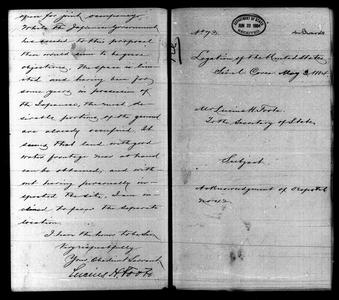 open for joint occupancy.
While the Japanese Government
has acceded to this proposal
there would seem to be grave
objections. The space is lim-
ited and having been for
some years in possession of
the Japanese, the most de-
sirable portions of the ground
are already occupied. It
seems that land with good
water frontage near at hand
can be obtained, and with-
out having personally in-
spected the site, I am in-
clined to favor the separate
location.
I have the honor to be Sir
Very respectfully
Your Obedient Servant
Lucius H. Foote
DEPARTMENT OF STATE
RECEIVED
No 73.
Legation of the United States
Söul Corea May 3, 1884
Mr. Lucius H. Foote.
To the Secretary of State.
Subject
Acknowledgment of Dispatch
No 42